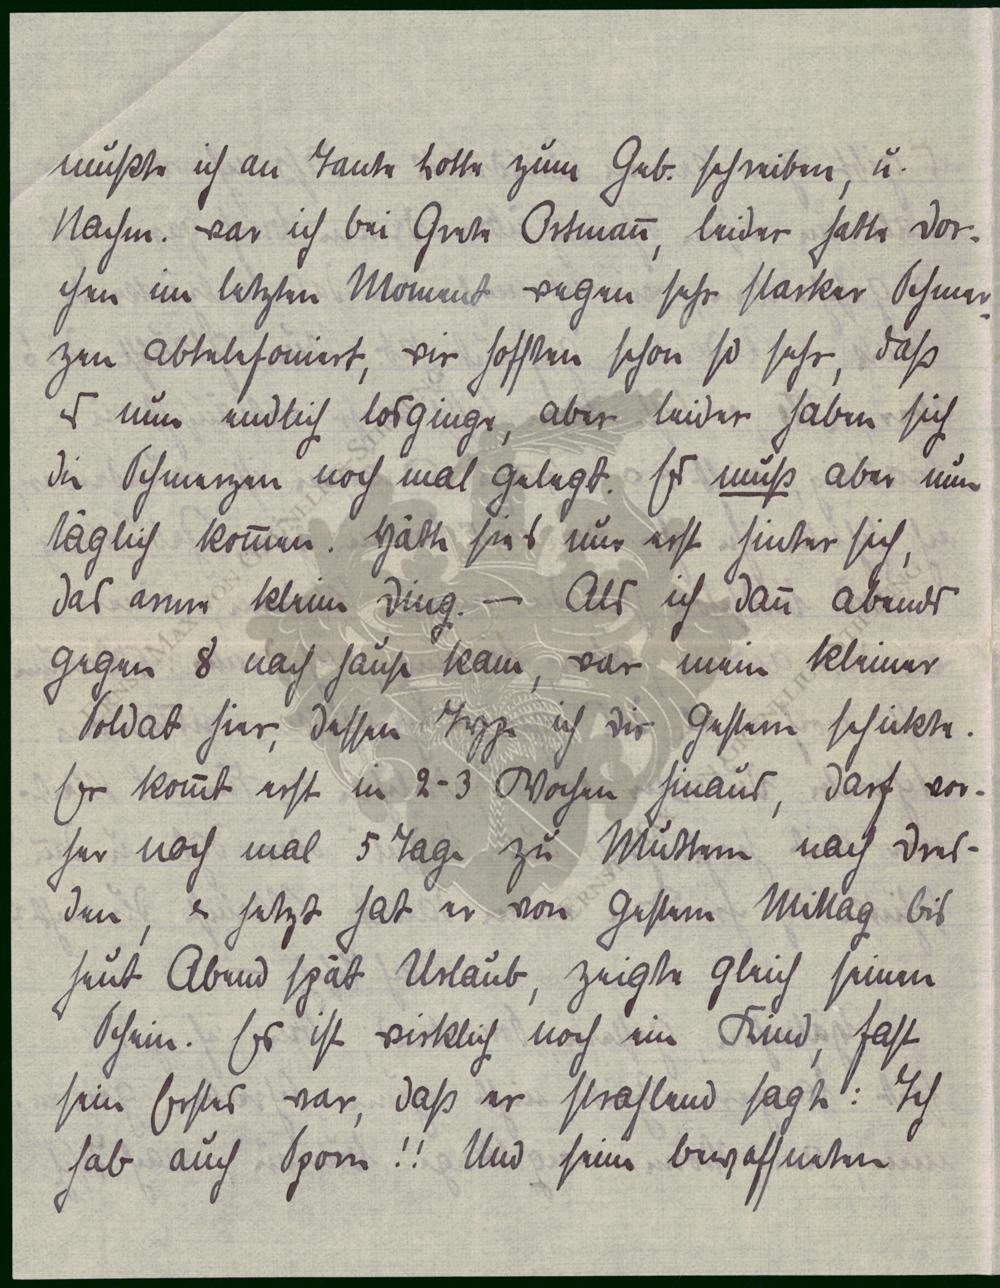 mußte ich an Tante Lotte zum Geb. schreiben, u.
Nachm. war ich bei Grete Ostmañ, leider hatte Dor-
chen im letzten Moment wegen sehr starker Schmer-
zen abtelefoniert, wir hofften schon so sehr, daß
es nun endlich losginge, aber leider haben sich
die Schmerzen noch mal gelegt. Es muß aber nun
täglich kom̄en. Hätte sie's nur erst hinter sich,
das arme kleine Ding. — Als ich dañ abends
gegen 8 nach Hause kam, war mein kleiner
Soldat hier, dessen ich dir gestern schickte.
Er kom̄t erst in 2-3 Wochen hinaus, darf vor-
her noch mal 5 Tage zu Muttern nach Dres-
den, & jetzt hat er von gestern Mittag bis
heut Abend spät Urlaub, zeigte gleich seinen
Schein. Er ist wirklich noch ein Kind, fast
sein Erstes war, daß er strahlend sagte: Ich
hab auch Sporn!! Und seine bewaffneten